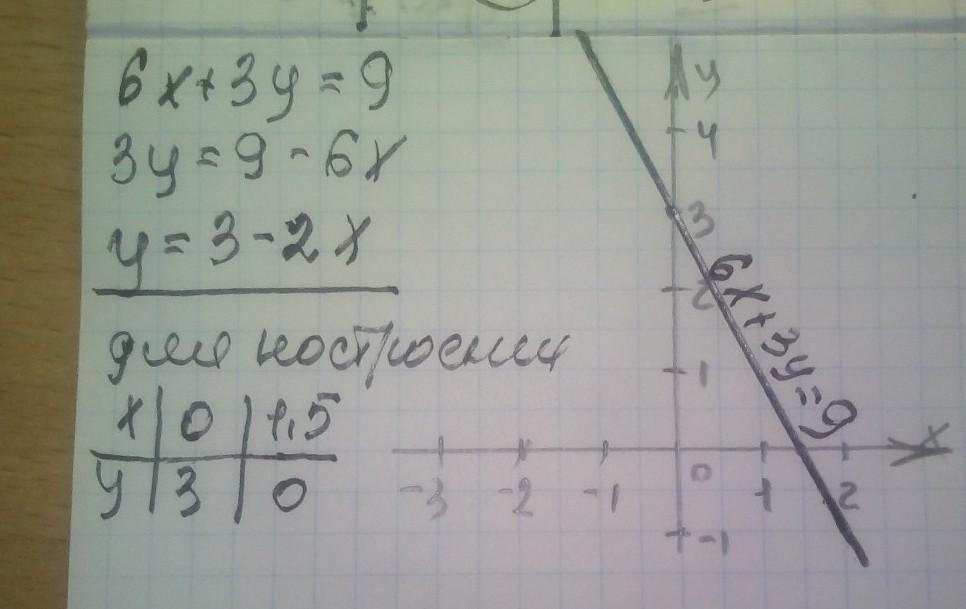 6x+3y=9
3y=9-6x
y=3-2x
для построения
x 0 1,5
y 3 0
y
4
3
2
1
6x+3y=9
-3 -2 -1 0 1 2 x
-1